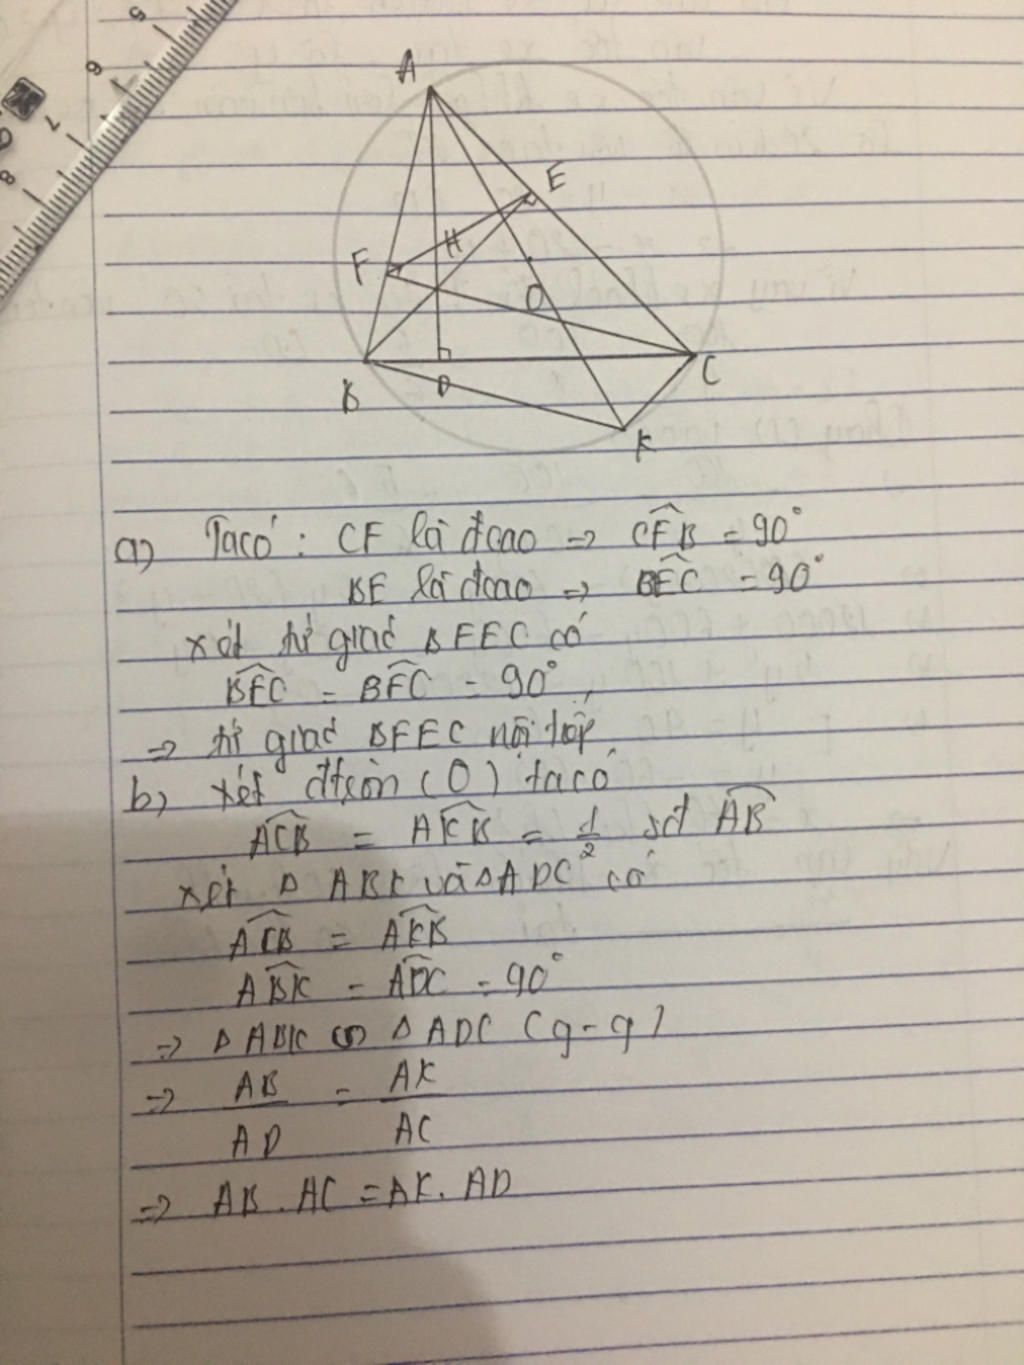 5
6
7
8
A
E
F
H
O
B
D
C
K
a) Ta có : CF là đcao => CFB = 90°
BE là đcao => BEC = 90°
xét tứ giác BFEC có
BEC = BFC = 90°
=> tứ giác BFEC nội tiếp
b) xét đtròn (O) ta có
ACB = AKB = 1/2 sđ AB
xét Δ ABK và Δ ADC có
ACB = AKB
ABK = ADC = 90°
=> Δ ABK ∽ Δ ADC (g-g)
=> AB/AD = AK/AC
=> AB . AC = AK . AD